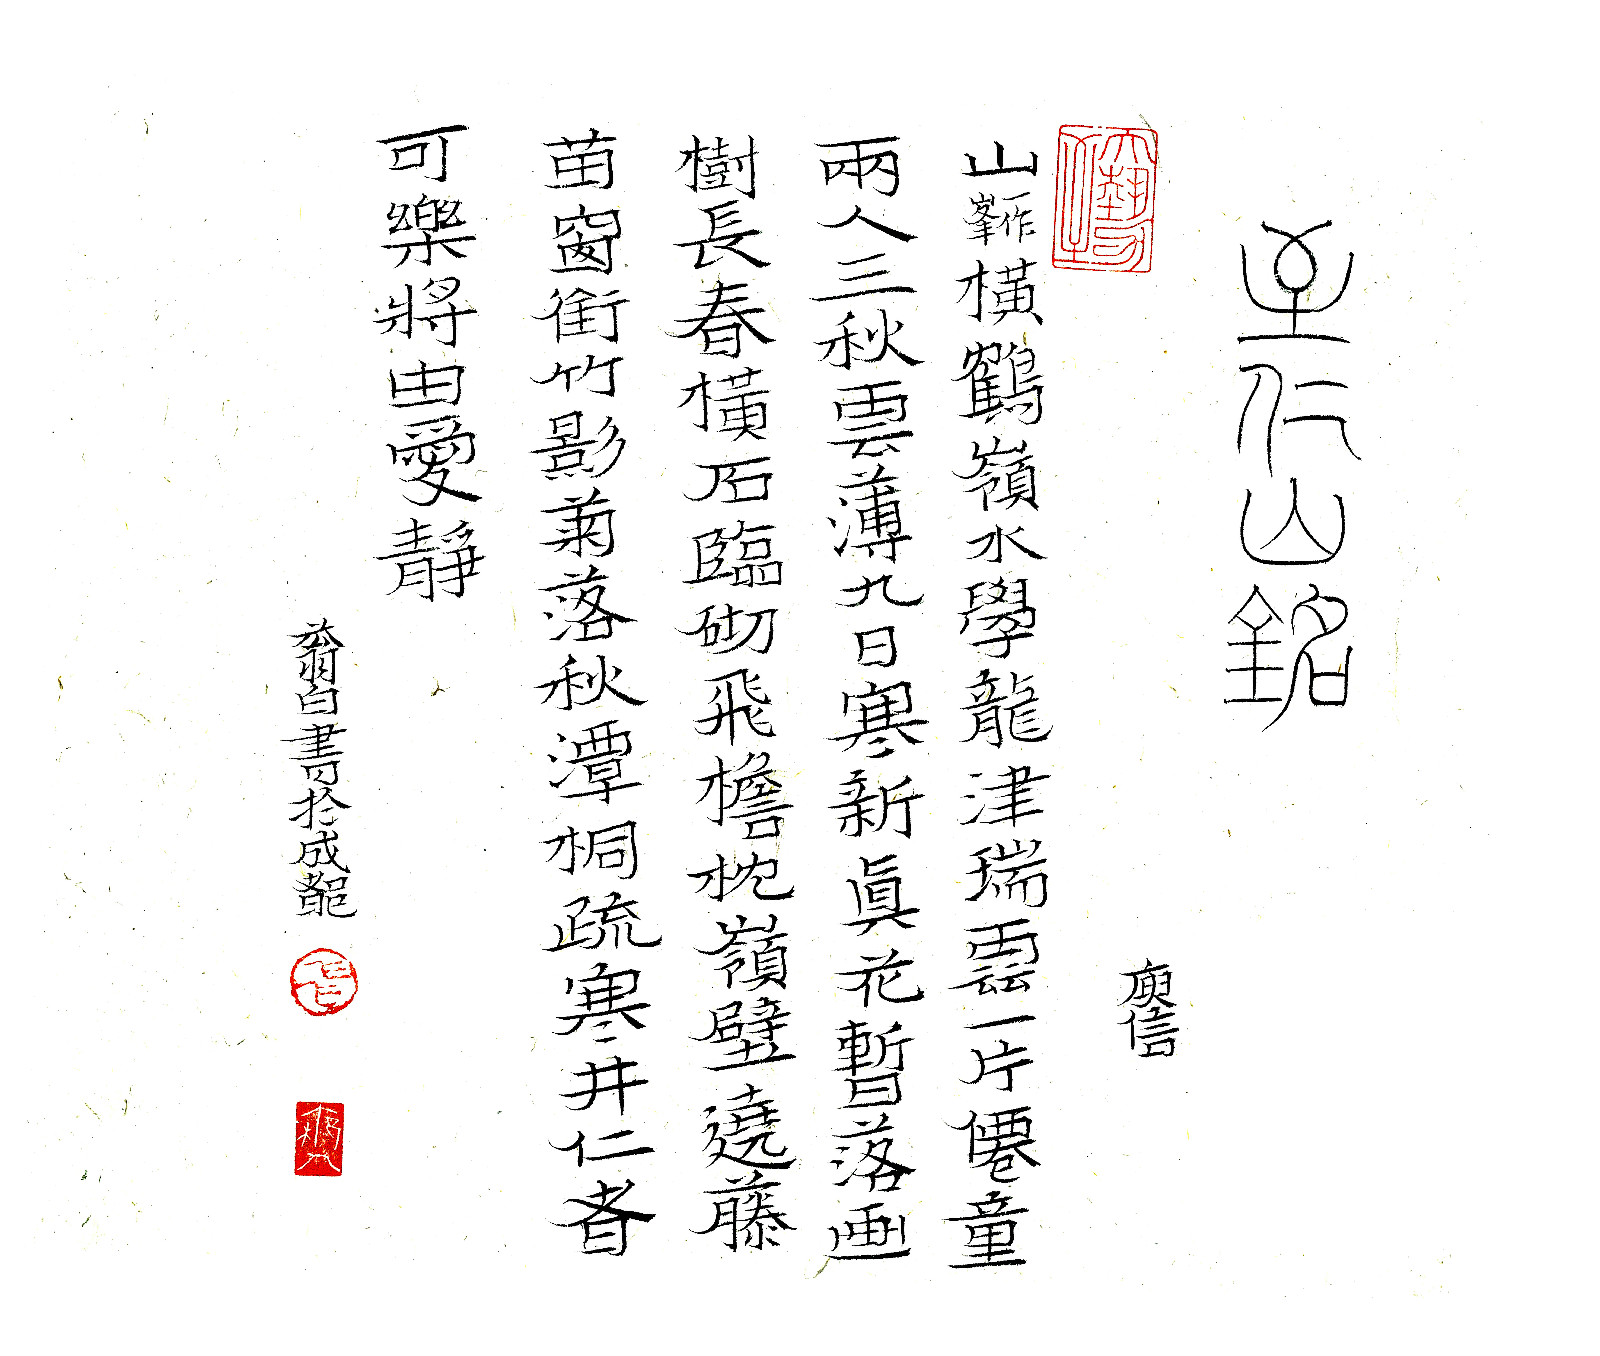 至仁山銘
庾信
山一作峯橫鶴嶺水學龍津瑞雲一片僊童
兩人三秋雲薄九日寒新眞花暫落画
樹長春橫石臨砌飛檐枕嶺壁遶藤
苗窗銜竹影菊落秋潭桐疏寒井仁者
可樂將由愛靜
翁白書於成都